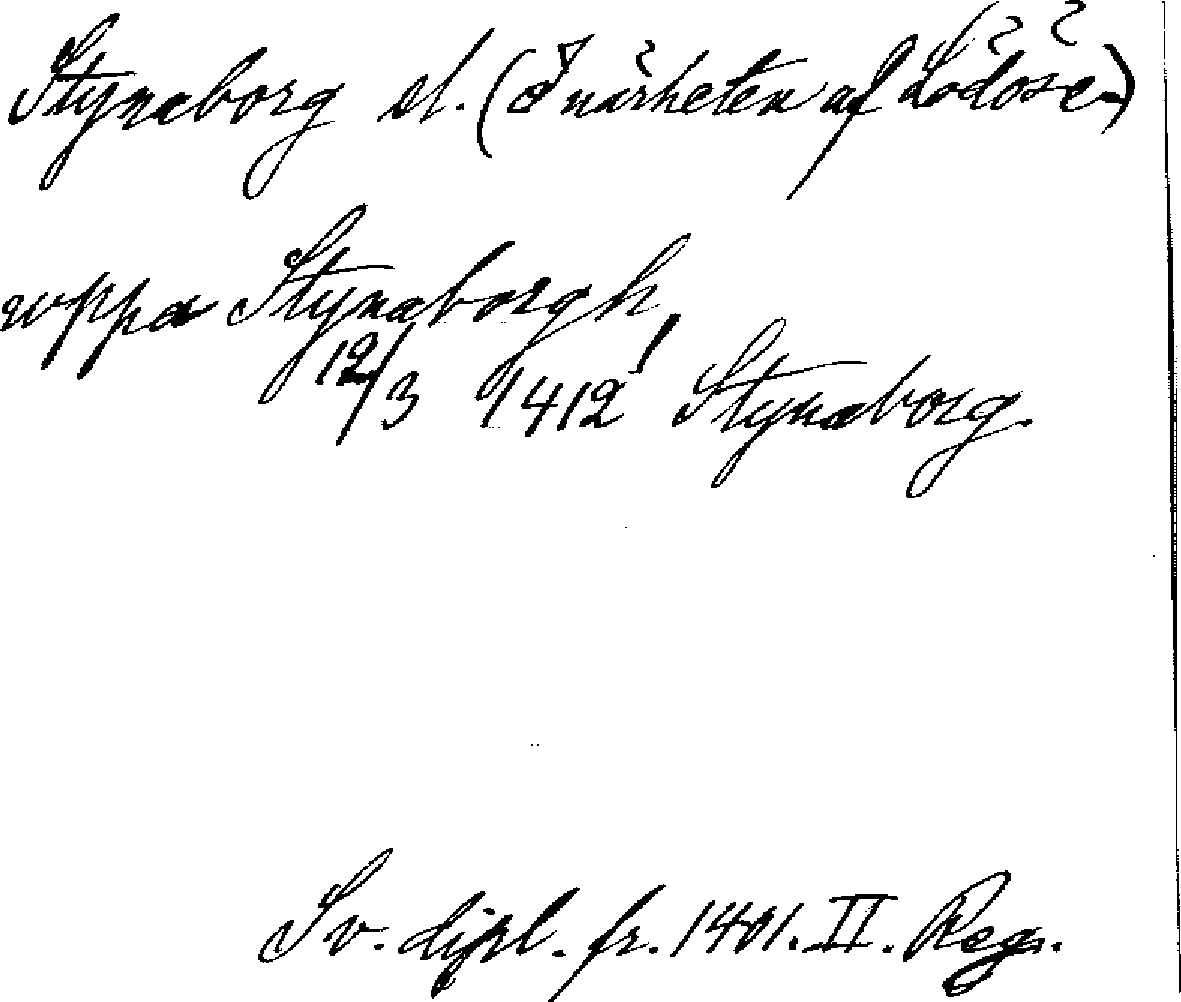 Stynaborg sl. (I närheten af Lödöse)
uppa Stynaborgh,
12/3 1412! Stynaborg.
Sv. dipl. fr. 1401. II. Reg.